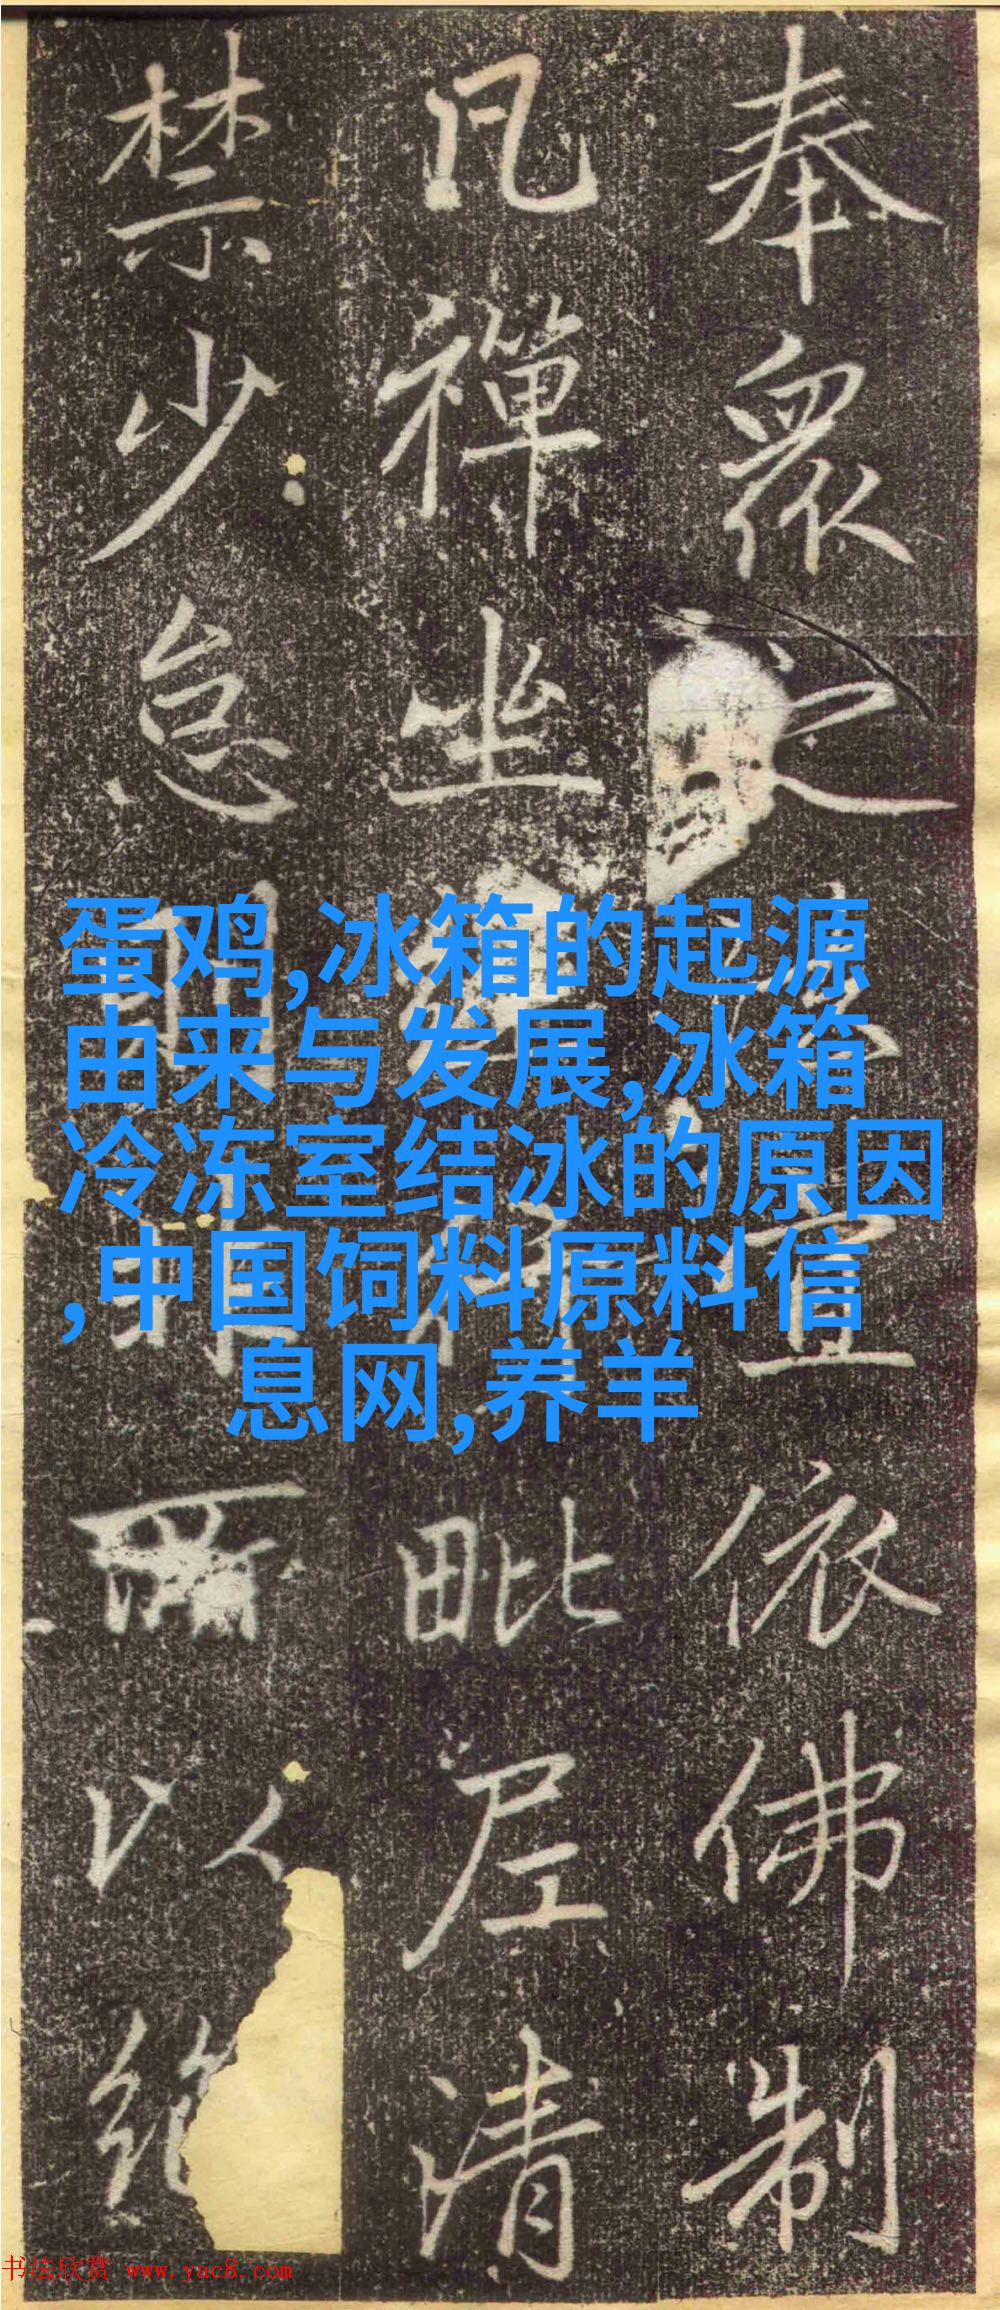 奉衆
依佛制
凡禪坐
毗尼清
禁少怠
以絶
蛋鸡,冰箱的起源
由来与发展,冰箱
冷冻室结冰的原因
,中国饲料原料信
息网,养羊
书法欣赏 www.yac8.com